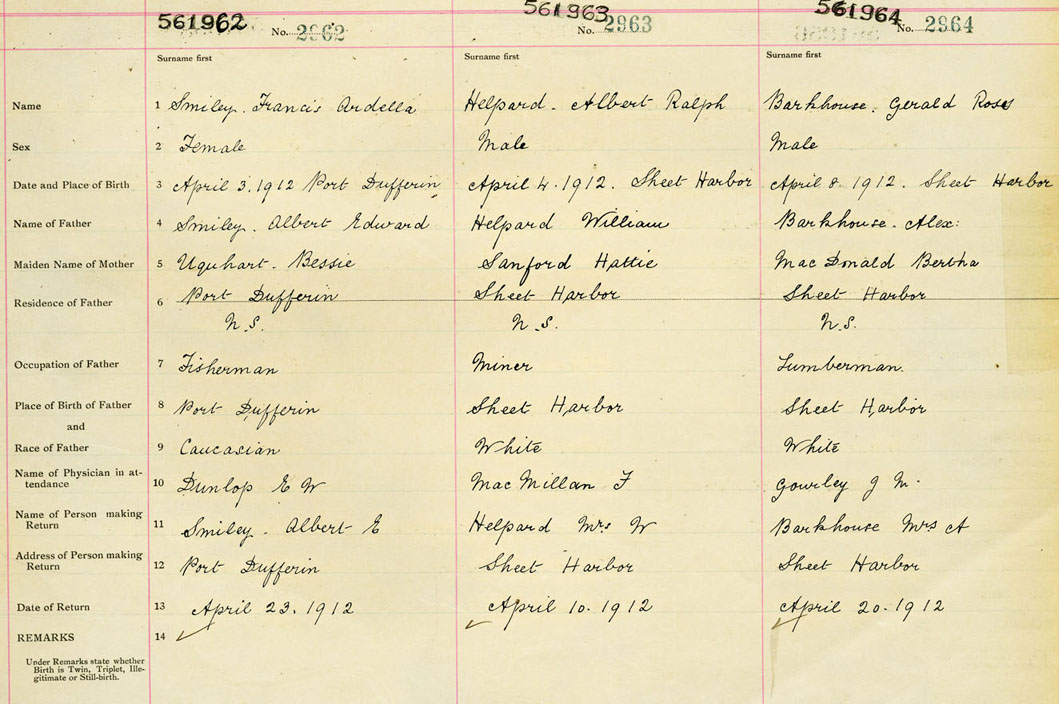 561962 No. 2962 561963 No. 2963 561964 No. 2964
Surname first Surname first Surname first
Name 1 Smiley. Francis Ardella Helpard. Albert Ralph Barkhouse. Gerald Ross
Sex 2 Female Male Male
Date and Place of Birth 3 April 3. 1912 Port Dufferin April 4. 1912. Sheet Harbor April 8. 1912. Sheet Harbor
Name of Father 4 Smiley. Albert Edward Helpard William Barkhouse. Alex:
Maiden Name of Mother 5 Uquhart. Bessie Sanford Hattie MacDonald Bertha
Residence of Father 6 Port Dufferin Sheet Harbor Sheet Harbor
N.S. N.S. N.S.
Occupation of Father 7 Fisherman Miner Lumberman.
Place of Birth of Father 8 Port Dufferin Sheet Harbor Sheet Harbor
and
Race of Father 9 Caucasian White White
Name of Physician in at-
tendance 10 Dunlop E W MacMillan F Gourley J M.
Name of Person making
Return 11 Smiley. Albert E Helpard Mrs W Barkhouse Mrs A
Address of Person making
Return 12 Port Dufferin Sheet Harbor Sheet Harbor
Date of Return 13 April 23. 1912 April 10. 1912 April 20. 1912
REMARKS 14
Under Remarks state whether
Birth is Twin, Triplet, Ille-
gitimate or Still-birth.